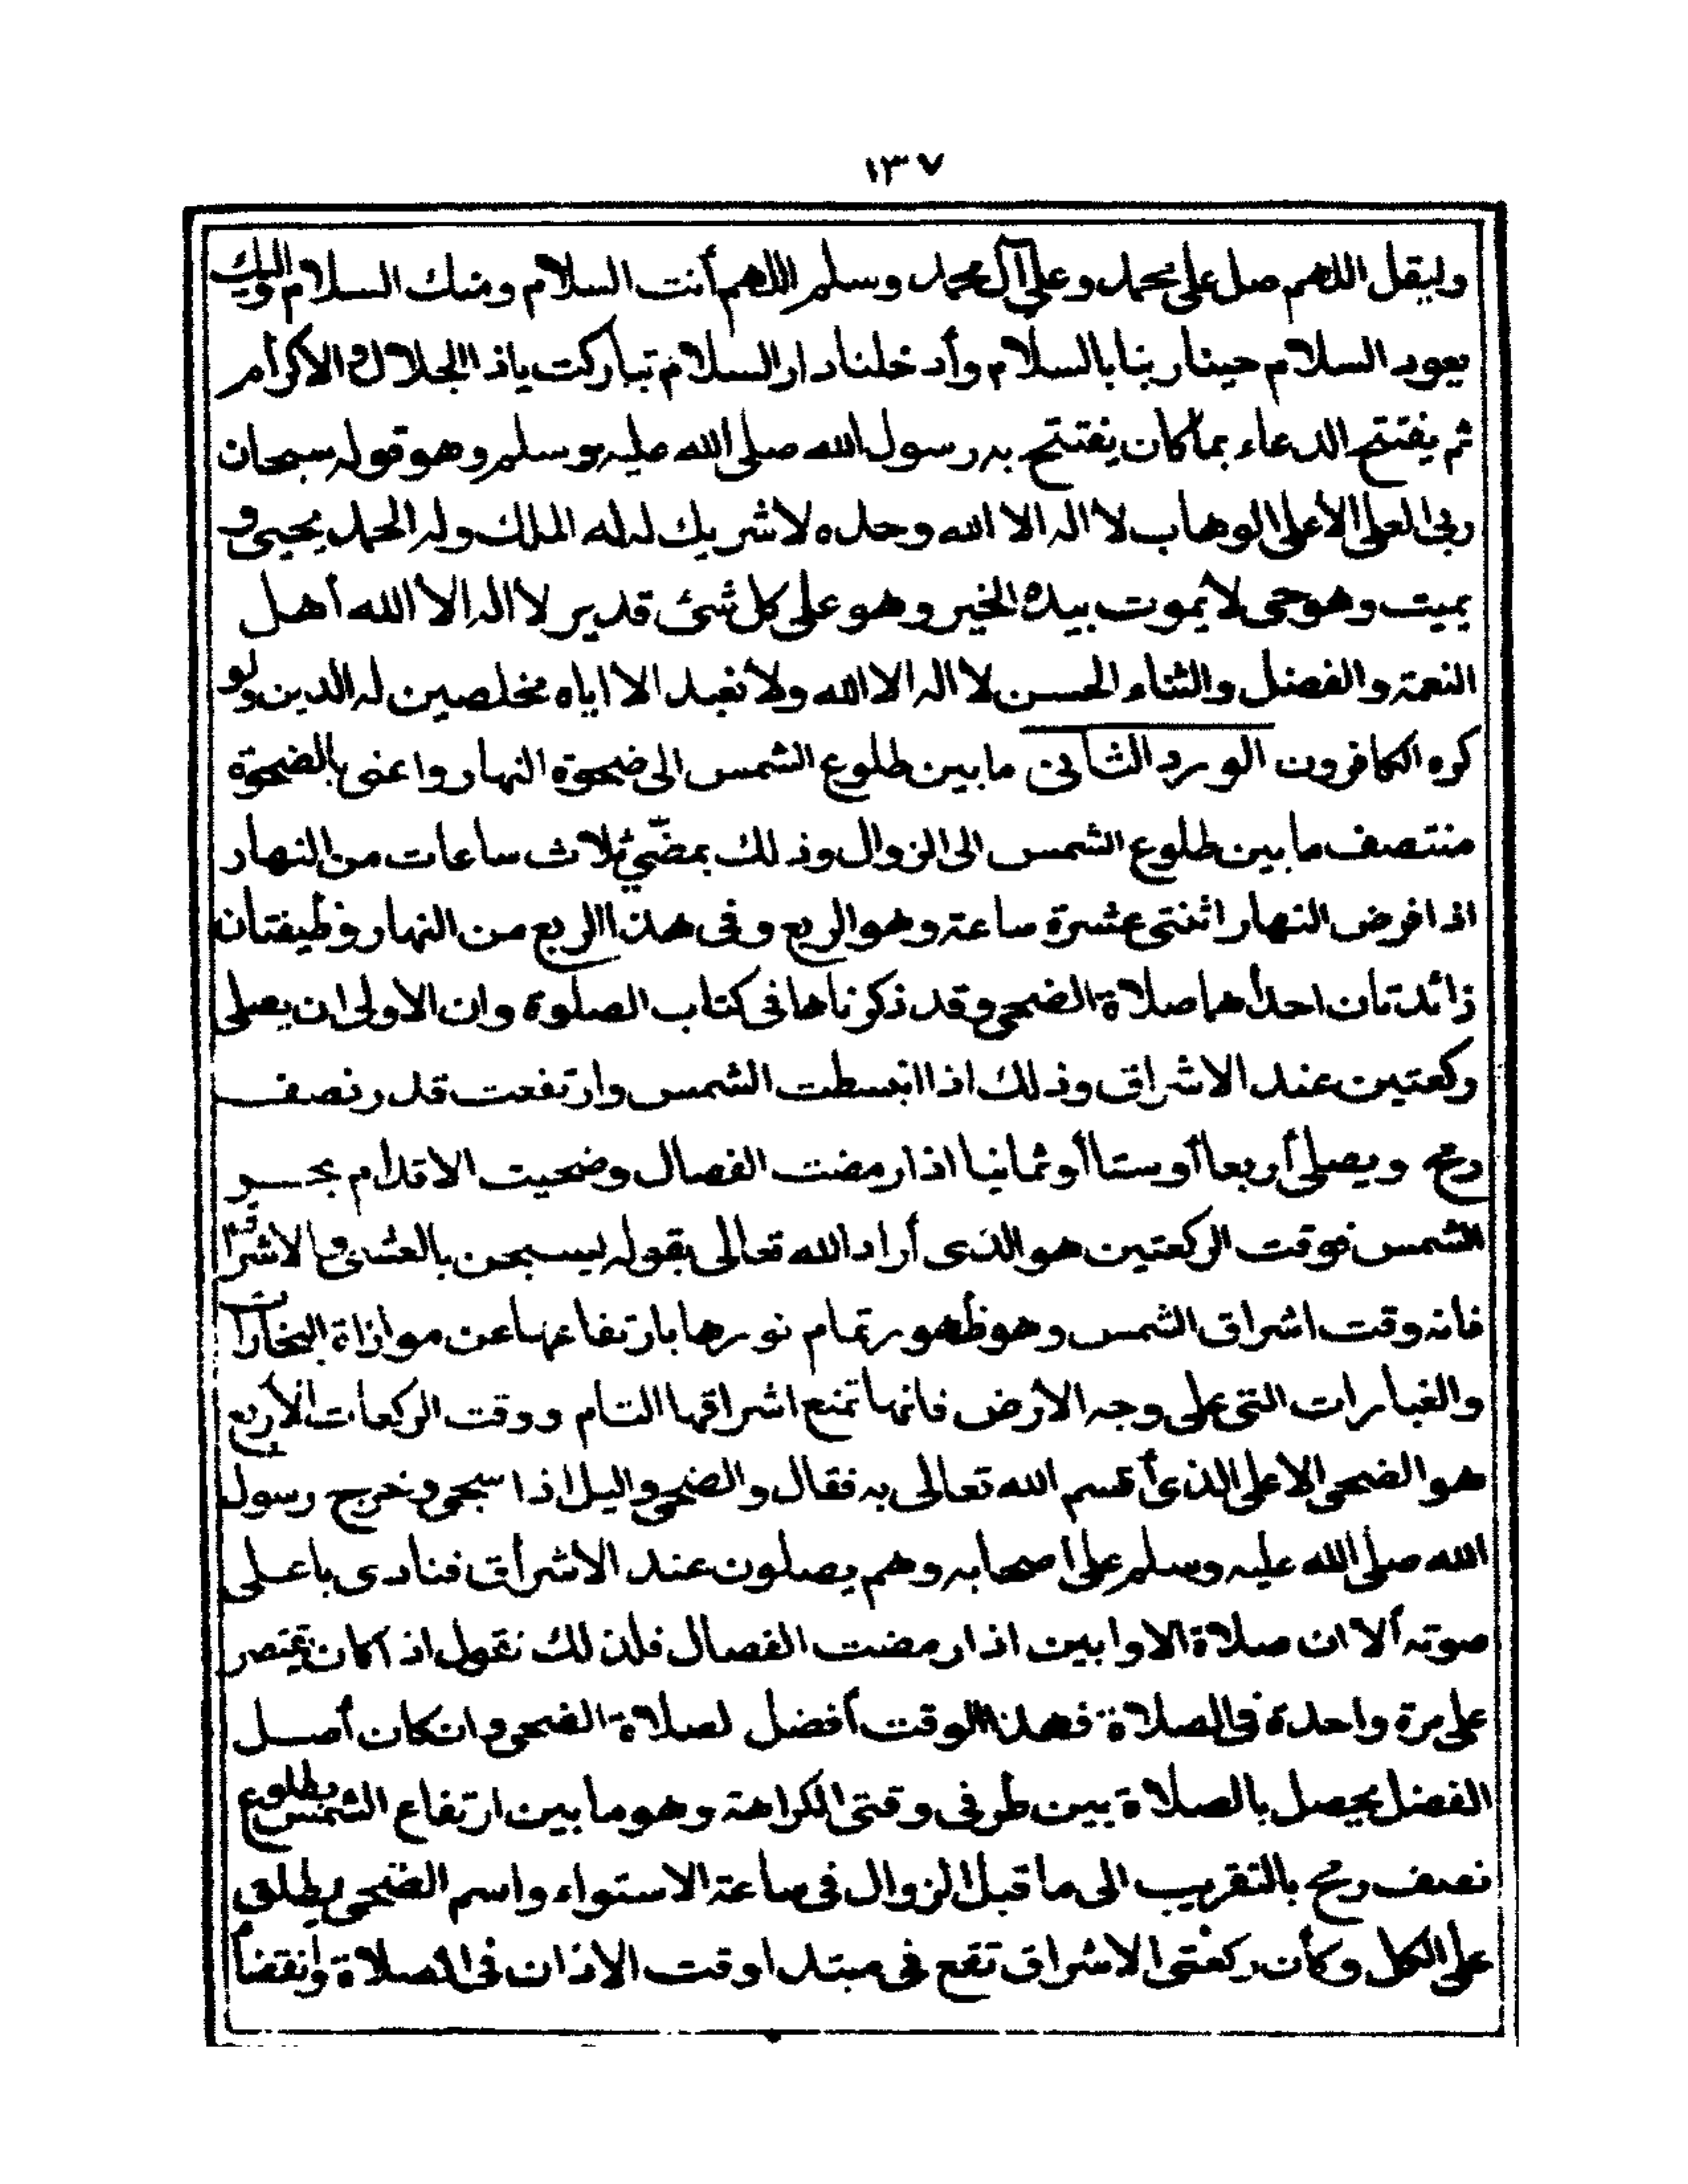 ١٣٧
وليقل اللهم صل على محمد وعلى آل محمد وسلم اللهم أنت السلام ومنك السلام واليك
يعود السلام حينا ربنا بالسلام وأدخلنا دار السلام تباركت ياذا الجلال والاكرام
ثم يفتتح الدعاء بما كان يفتتح به رسول الله صلى الله عليه وسلم وهو قوله سبحان
ربي العلى الأعلى الوهاب لا اله الا الله وحده لا شريك له له الملك وله الحمد يحيى و
يميت وهو حي لا يموت بيده الخير وهو على كل شئ قدير لا اله الا الله أهل
النعمة والفضل والثناء الحسن لا اله الا الله ولا نعبد الا اياه مخلصين له الدين ولو
كره الكافرون الورد الثاني ما بين طلوع الشمس الى ضحوة النهار واعنى بالضحوة
منتصف ما بين طلوع الشمس الى الزوال وذلك بمضيّ ثلاث ساعات من النهار
اذا فرض النهار اثنتى عشرة ساعة وهو الربع وفى هذا الربع من النهار وظيفتان
زائدتان احداهما صلاة الضحى وقد ذكرناها فى كتاب الصلوة وان الاولى ان يصلى
ركعتين عند الاشراق وذلك اذا انبسطت الشمس وارتفعت قدر نصف
رمح ويصلى أربعا أوستا أو ثمانيا اذا رمضت الفصال وضحيت الاقدام بحر
الشمس فوقت الركعتين هو الذى أراد الله تعالى بقوله يسبحن بالعشى والاشراق
فانه وقت اشراق الشمس وهو ظهور تمام نورها بارتفاعها عن موازاة البخارات
والغبارات التى على وجه الارض فانها تمنع اشراقها التام ووقت الركعات الأربع
هو الضحى الاعلى الذى أقسم الله تعالى به فقال والضحى واليل اذا سجى وخرج رسول
الله صلى الله عليه وسلم على اصحابه وهم يصلون عند الاشراق فنادى باعلى
صوته ألا ان صلاة الاوابين اذا رمضت الفصال فلذلك نقول اذا كان يقتصر
على مرة واحدة فى الصلاة فهذا الوقت أفضل لصلاة الضحى وان كان أصل
الفضل يحصل بالصلاة بين طرفى وقتى الكراهة وهو ما بين ارتفاع الشمس بطلوع
نصف رمح بالتقريب الى ما قبل الزوال فى ساعة الاستواء واسم الضحى يطلق
على الكل وكأن ركعتى الاشراق تقع فى مبتدا وقت الاذان فى الصلاة وانقضا